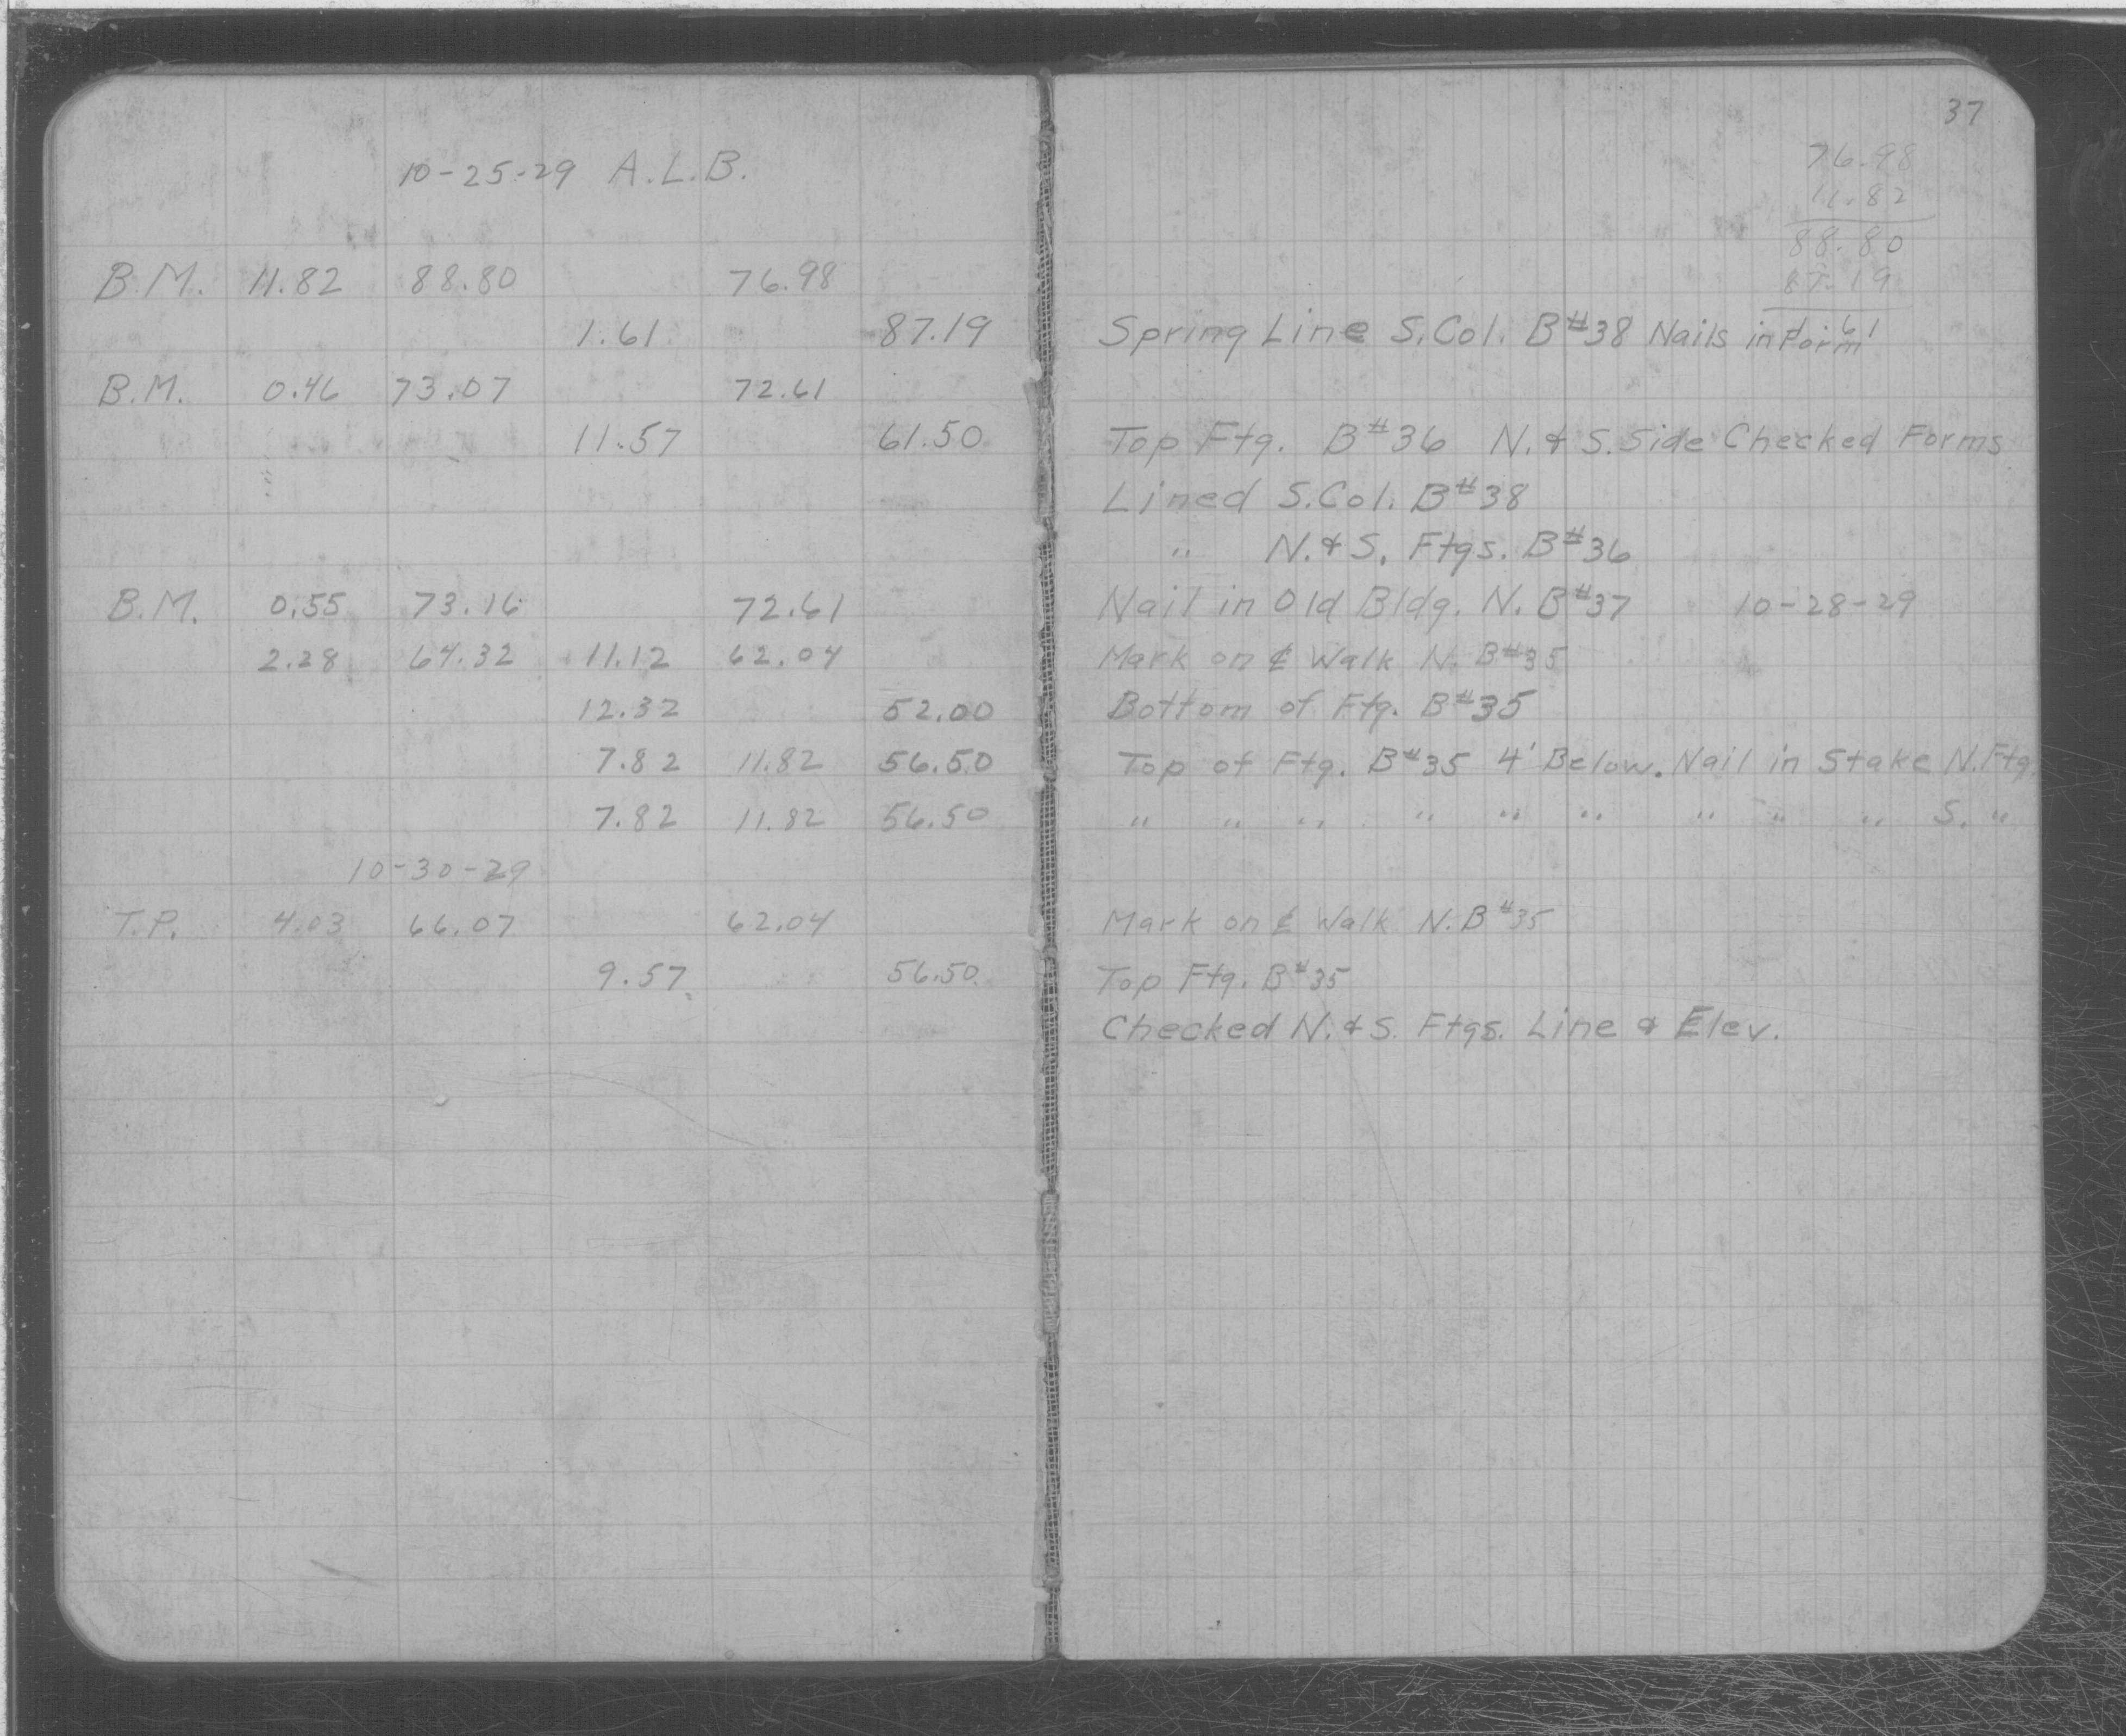 37
10-25-29 A.L.B.
76.98
11.82
88.80
87.19
1.61
B.M. 11.82 88.80 76.98
1.61 87.19 Spring Line S. Col. B#38 Nails in Form
B.M. 0.46 73.07 72.61
11.57 61.50 Top Ftg. B#36 N. & S. Side Checked Forms
Lined S. Col. B#38
" N. & S. Ftgs. B#36
B.M. 0.55 73.16 72.61 Nail in Old Bldg. N. B#37 10-28-29
2.28 64.32 11.12 62.04 Mark on ℄ Walk N. B#35
12.32 52.00 Bottom of Ftg. B#35
7.82 11.82 56.50 Top of Ftg. B#35 4' Below. Nail in Stake N. Ftg.
7.82 11.82 56.50 " " " " " " " " " S. "
10-30-29
T.P. 4.03 66.07 62.04 Mark on ℄ Walk N. B#35
9.57 56.50 Top Ftg. B#35
Checked N. & S. Ftgs. Line & Elev.